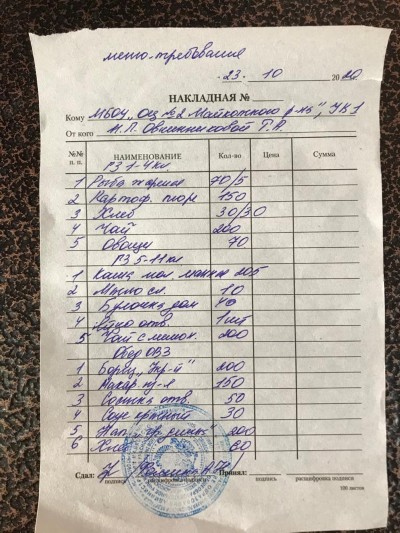 меню-требования
23. 10 2020
НАКЛАДНАЯ №
Кому МБОУ „ОЦ №2 Майкопского р-на", УК1
От кого И.П. Овчинниковой Г.А.
№№ п. п. НАИМЕНОВАНИЕ Кол-во Цена Сумма
ГЗ 1-4 кл.
1 Рыба жарен 70/5
2 Картоф. пюре 150
3 Хлеб 30/30
4 Чай 200
5 Овощи 70
ГЗ 5-11 кл
1 Каша мол. манная 205
2 Масло сл. 10
3 Булочка дом
4 Яйцо отв. 1шт
5 Чай с лимон. 200
Обед ОВЗ
1 Борщ „Укр-й" 200
2 Макар из-я 150
3 Сосиска отв. 50
4 Соус 30
5 Нап. 200
6 Хлеб 60
Сдал: Принял:
подпись расшифровка подписи подпись расшифровка подписи
100 листов